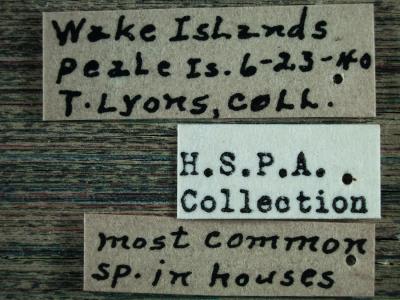 Wake Islands
Peale Is. 6-23-40
T. Lyons, coll.
H.S.P.A.
Collection
most common
sp. in houses